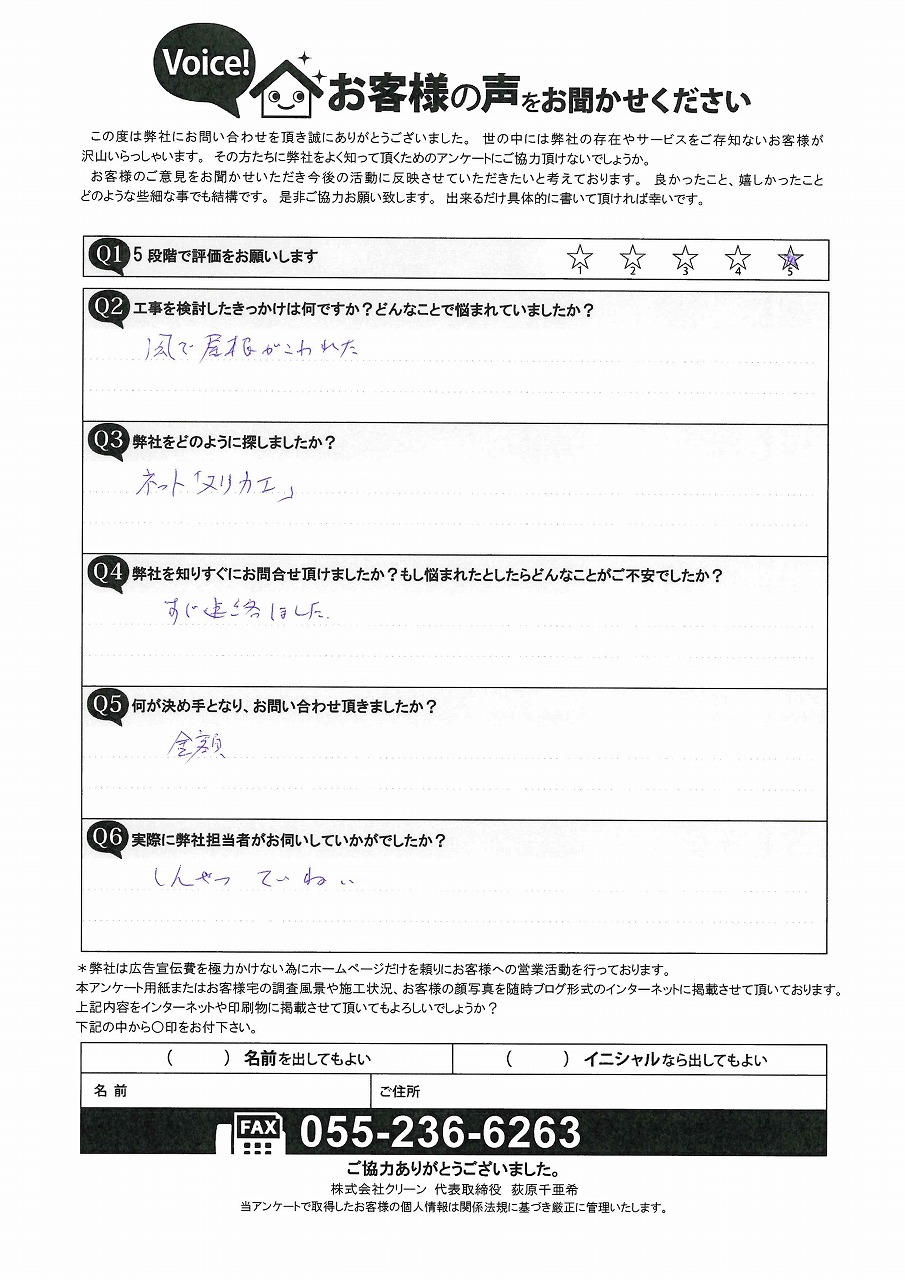 Voice!
お客様の声をお聞かせください
この度は弊社にお問い合わせを頂き誠にありがとうございました。 世の中には弊社の存在やサービスをご存知ないお客様が
沢山いらっしゃいます。 その方たちに弊社をよく知って頂くためのアンケートにご協力頂けないでしょうか。
お客様のご意見をお聞かせいただき今後の活動に反映させていただきたいと考えております。 良かったこと、嬉しかったこと
どのような些細な事でも結構です。 是非ご協力お願い致します。 出来るだけ具体的に書いて頂ければ幸いです。
Q1 5 段階で評価をお願いします 1 2 3 4 5
Q2 工事を検討したきっかけは何ですか？どんなことで悩まれていましたか？
風で屋根がこわれた
Q3 弊社をどのように探しましたか？
ネット「ヌリカエ」
Q4 弊社を知りすぐにお問合せ頂けましたか？もし悩まれたとしたらどんなことがご不安でしたか？
すぐ連絡ました.
Q5 何が決め手となり、お問い合わせ頂きましたか？
金額
Q6 実際に弊社担当者がお伺いしていかがでしたか？
しんせつ ていねい
＊弊社は広告宣伝費を極力かけない為にホームページだけを頼りにお客様への営業活動を行っております。
本アンケート用紙またはお客様宅の調査風景や施工状況、お客様の顔写真を随時ブログ形式のインターネットに掲載させて頂いております。
上記内容をインターネットや印刷物に掲載させて頂いてもよろしいでしょうか？
下記の中から〇印をお付下さい。
（　　）名前を出してもよい （　　）イニシャルなら出してもよい
名 前 ご住所
FAX 055-236-6263
ご協力ありがとうございました。
株式会社クリーン 代表取締役 荻原千亜希
当アンケートで取得したお客様の個人情報は関係法規に基づき厳正に管理いたします。